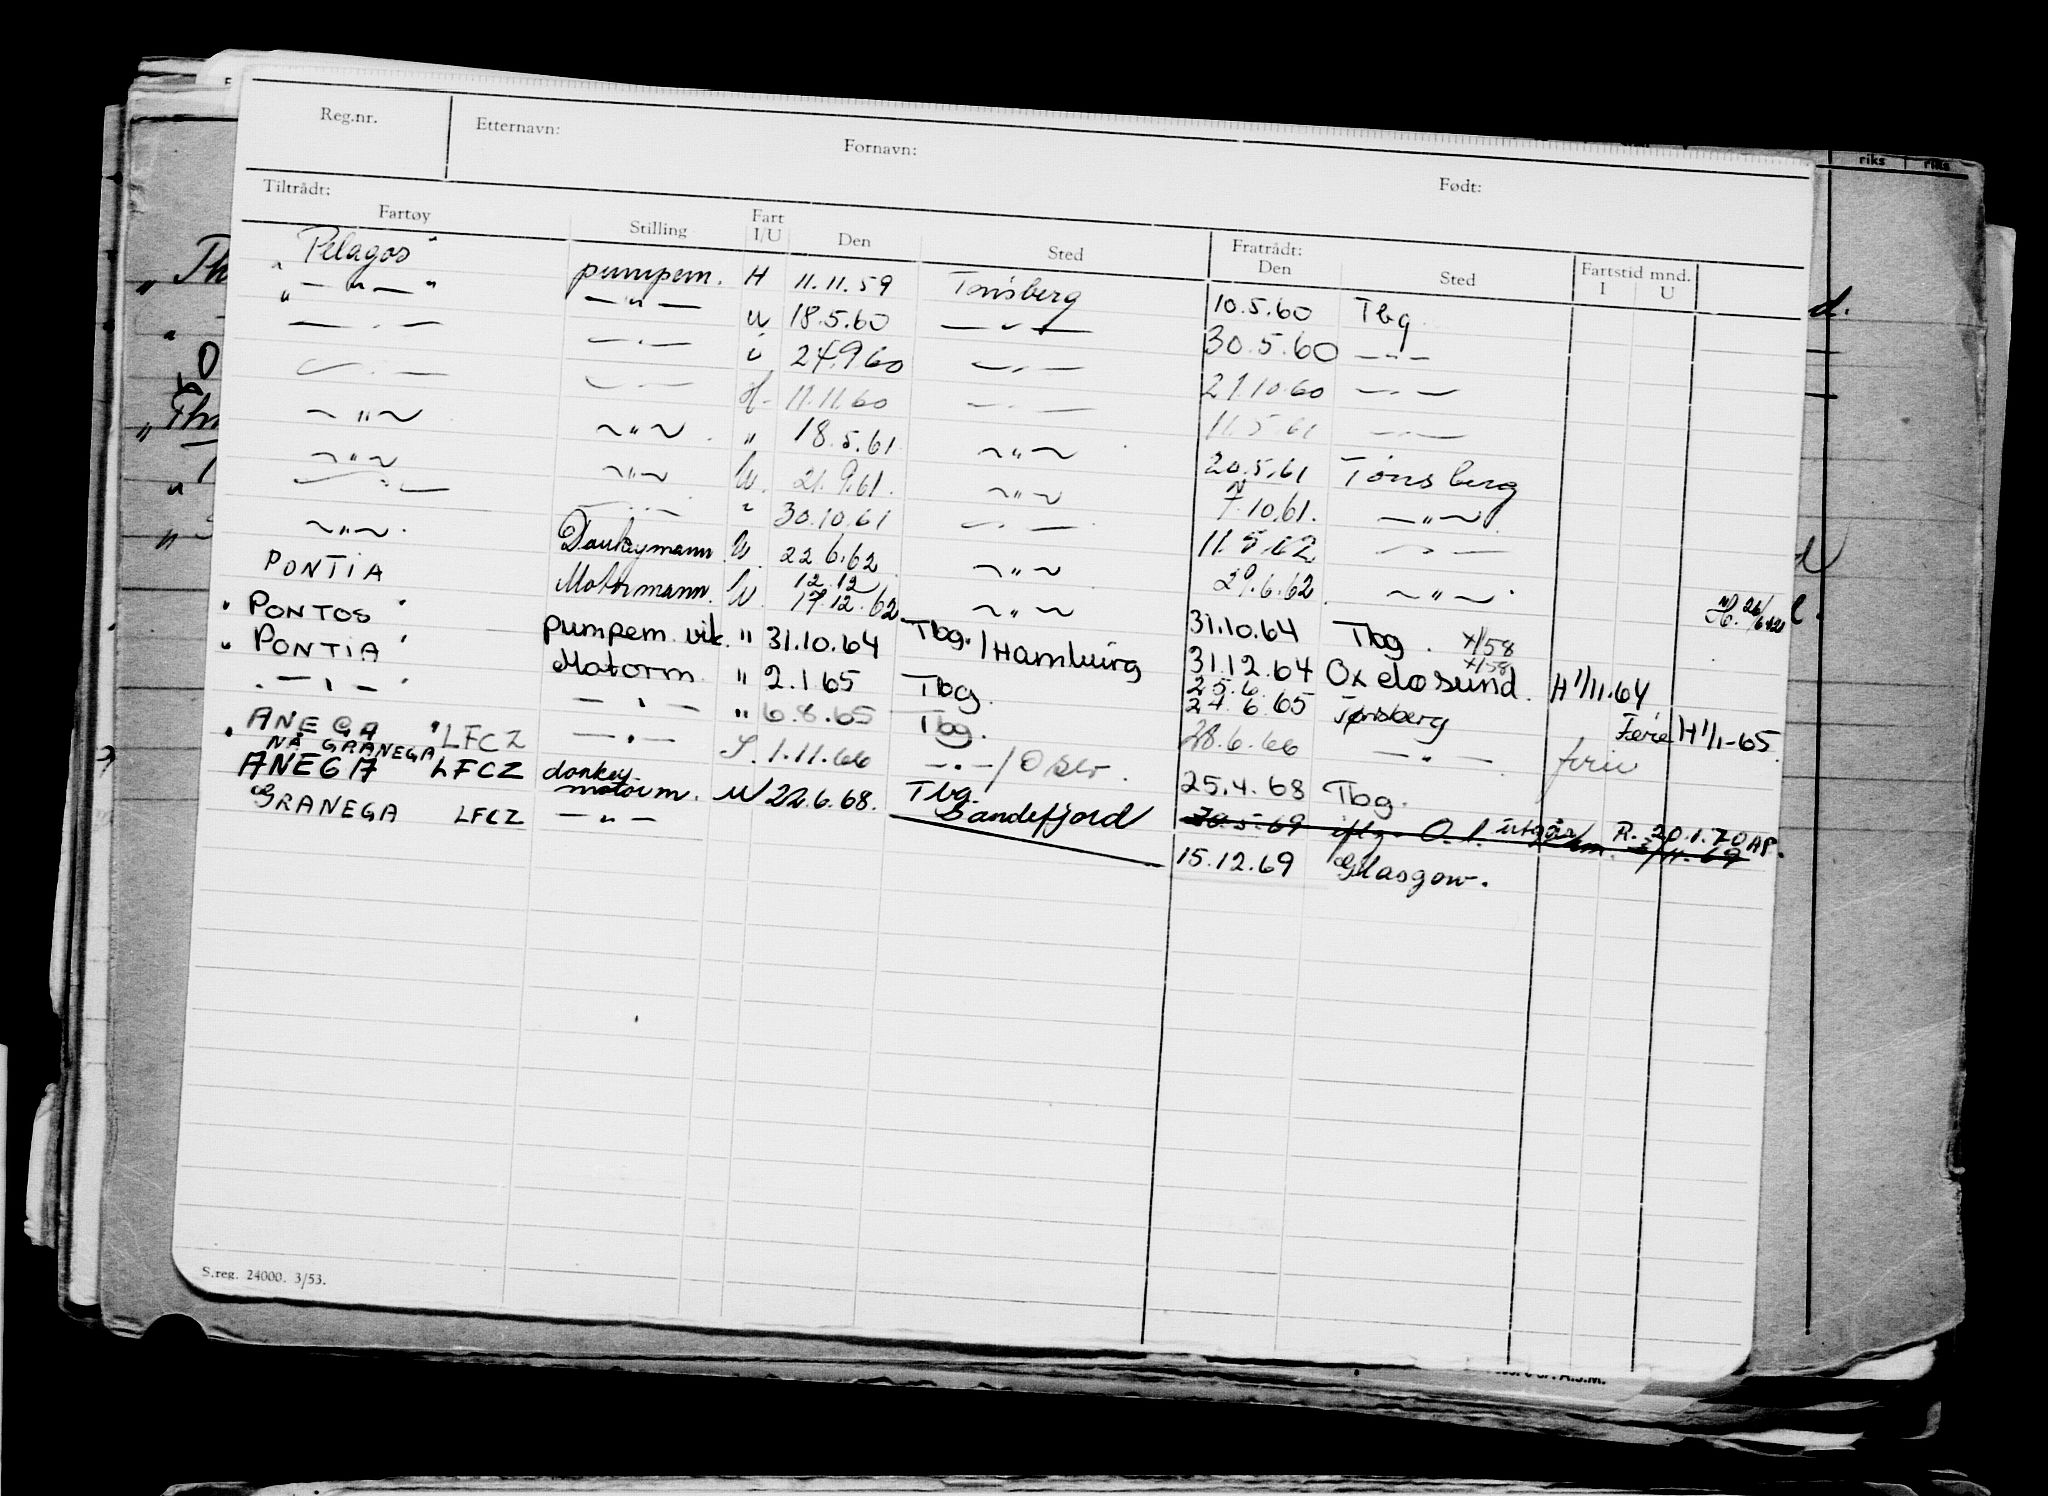 Reg.nr. Etternavn: Fornavn: Født:
Tiltrådt: Fratrådt: Fartstid mnd.
Fartøy Stilling Fart I/U Den Sted Den Sted I U
"Pelagos" pumpem. H 11.11.59 Tønsberg 10.5.60 Tbg
" — " — " — " — u 18.5.60 — " — 30.5.60 — " —
— " — — " — u 24.9.60 — " — 21.10.60 — " —
— " — — " — H. 11.11.60 — " — 11.5.61 — " —
~ " ~ ~ " ~ " 18.5.61 ~ " ~ 20.5.61 Tønsberg
~ " ~ ~ " ~ U. 21.9.61. ~ " ~ 7.10.61. — " ~
— " — — " — " 30.10.61 — " — 11.5.62 — " —
~ " ~. Donkeymann U. 22.6.62 ~ " ~ 29.6.62 ~ " ~
PONTIA Motormann. U. 12.12 17.12.62 ~ " ~ 31.10.64 Tbg. X/58
"PONTOS" pumpem. vik. " 31.10.64 Tbg./Hamburg 31.12.64 Oxelosund. X/58 H 1/11.64
"PONTIA" Motorm. " 2.1.65 Tbg. 25.6. 24.6.65 Tønsberg Ferie H 1/1-65
" — " — " — " — " 6.8.65 Tbg. 28.6.66 — " — ferie
"ANEGA" LFCZ — " — 1.11.66 — " —/Oslo. 25.4.68 Tbg.
NÅ GRANEGA
ANEGA LFCZ donkey motorm. U 22.6.68. Tbg. 30.5.69 R. 20.1.70 AP.
GRANEGA LFCZ — " — Sandefjord 15.12.69 Glasgow.
S.reg. 24000. 3/53.
riks riks